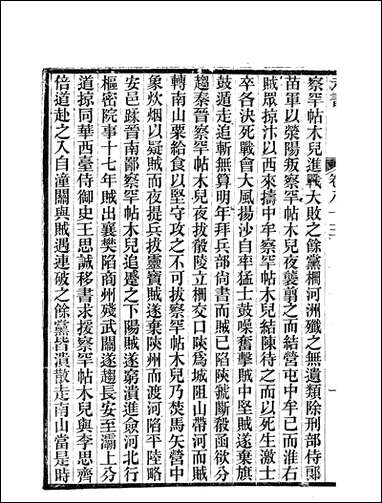 元書 卷八十三 一
察罕帖木兒進戰大敗之餘黨柵河洲殲之無遺類除刑部侍郎
苗軍以滎陽叛察罕帖木兒夜襲翦之而結營屯中牟已而淮右
賊眾掠汴以西來擣中牟察罕帖木兒結陳待之而以死生激士
卒各決死戰會大風揚沙自率猛士鼓噪奮擊賊中堅賊遂棄旗
鼓遁走追斬無算明年拜兵部尚書而賊已陷陝虢斷殽函欲分
趨秦晉察罕帖木兒夜拔殽陵立柵交口陝爲城阻山帶河而賊
轉南山粟給食以堅守攻之不可拔察罕帖木兒乃焚馬矢營中
象炊烟以疑賊而夜提兵拔靈寶賊遂棄陝州而渡河陷平陸略
安邑蹂晉南鄙察罕帖木兒追蹙之下陽賊遂窮潰進僉河北行
樞密院事十七年賊出襄樊陷商州殘武關遂趨長安至灞上分
道掠同華西臺侍御史王思誠移書求援察罕帖木兒與李思齊
倍道赴之入自潼關與賊遇連破之餘黨皆潰散走南山當是時